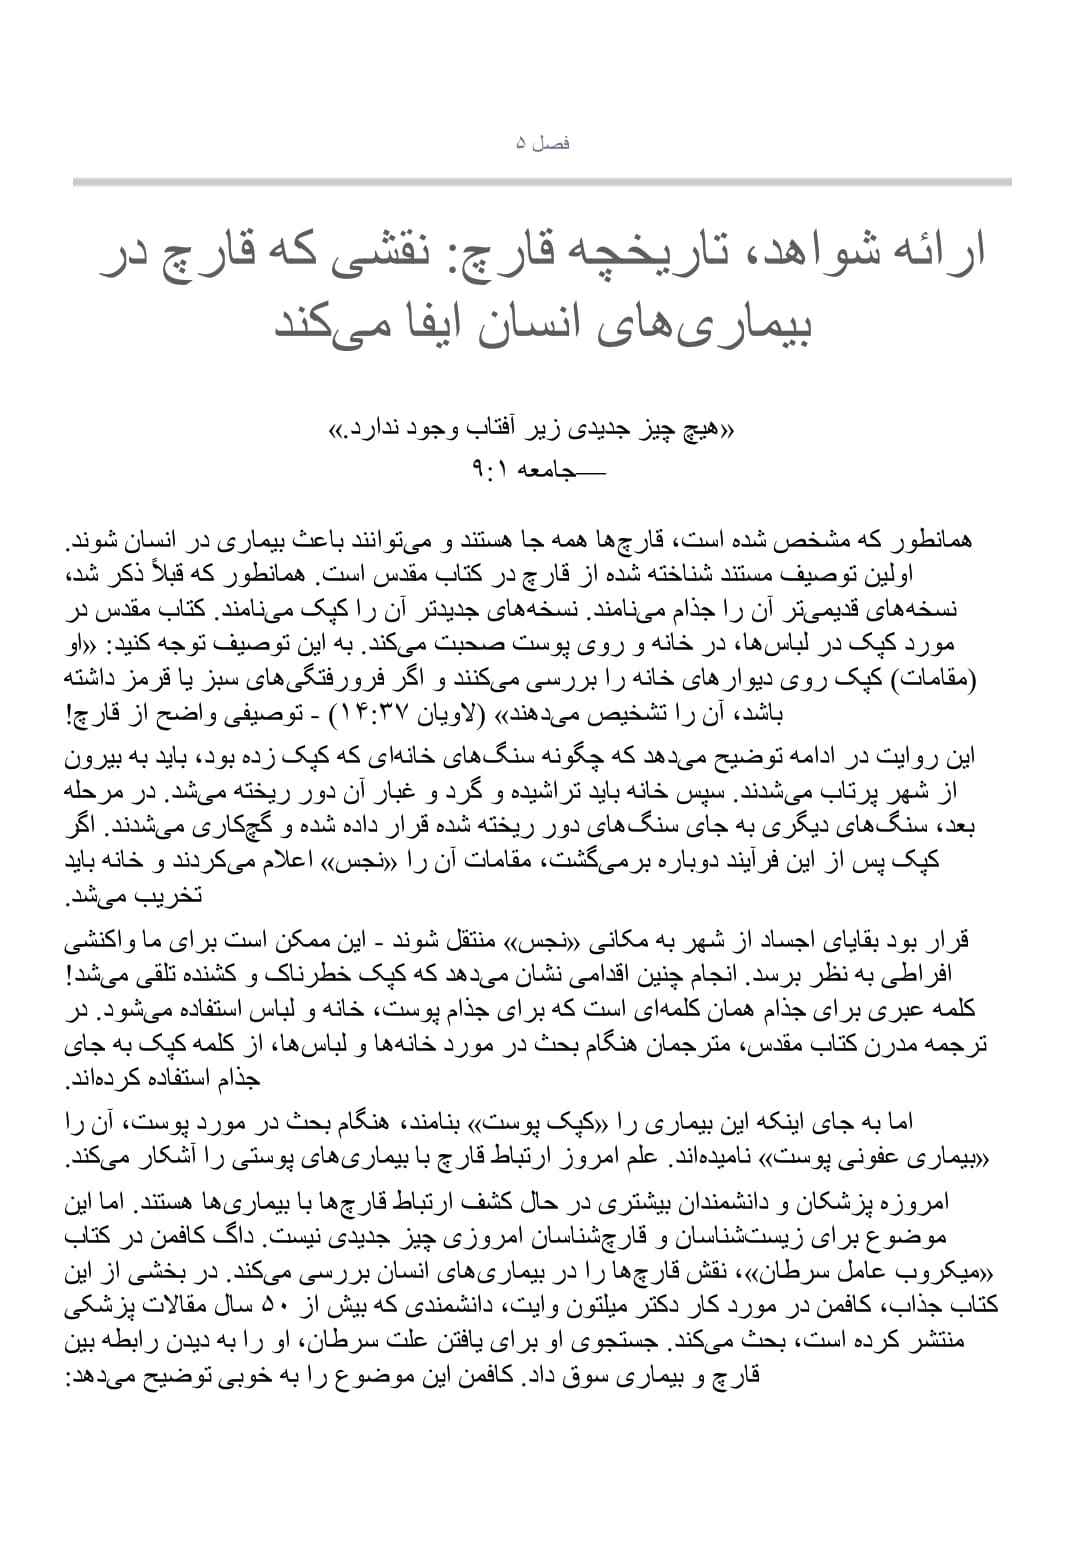 فصل ۵
ارائه شواهد، تاریخچه قارچ: نقشی که قارچ در
بیماری‌های انسان ایفا می‌کند
«هیچ چیز جدیدی زیر آفتاب وجود ندارد.»
—جامعه ۹:۱
همانطور که مشخص شده است، قارچ‌ها همه جا هستند و می‌توانند باعث بیماری در انسان شوند.
اولین توصیف مستند شناخته شده از قارچ در کتاب مقدس است. همانطور که قبلاً ذکر شد،
نسخه‌های قدیمی‌تر آن را جذام می‌نامند. نسخه‌های جدیدتر آن را کپک می‌نامند. کتاب مقدس در
مورد کپک در لباس‌ها، در خانه و روی پوست صحبت می‌کند. به این توصیف توجه کنید: «او
(مقامات) کپک روی دیوارهای خانه را بررسی می‌کنند و اگر فرورفتگی‌های سبز یا قرمز داشته
باشد، آن را تشخیص می‌دهند» (لاویان ۱۴:۳۷) - توصیفی واضح از قارچ!
این روایت در ادامه توضیح می‌دهد که چگونه سنگ‌های خانه‌ای که کپک زده بود، باید به بیرون
از شهر پرتاب می‌شدند. سپس خانه باید تراشیده و گرد و غبار آن دور ریخته می‌شد. در مرحله
بعد، سنگ‌های دیگری به جای سنگ‌های دور ریخته شده قرار داده شده و گچ‌کاری می‌شدند. اگر
کپک پس از این فرآیند دوباره برمی‌گشت، مقامات آن را «نجس» اعلام می‌کردند و خانه باید
تخریب می‌شد.
قرار بود بقایای اجساد از شهر به مکانی «نجس» منتقل شوند - این ممکن است برای ما واکنشی
افراطی به نظر برسد. انجام چنین اقدامی نشان می‌دهد که کپک خطرناک و کشنده تلقی می‌شد!
کلمه عبری برای جذام همان کلمه‌ای است که برای جذام پوست، خانه و لباس استفاده می‌شود. در
ترجمه مدرن کتاب مقدس، مترجمان هنگام بحث در مورد خانه‌ها و لباس‌ها، از کلمه کپک به جای
جذام استفاده کرده‌اند.
اما به جای اینکه این بیماری را «کپک پوست» بنامند، هنگام بحث در مورد پوست، آن را
«بیماری عفونی پوست» نامیده‌اند. علم امروز ارتباط قارچ با بیماری‌های پوستی را آشکار می‌کند.
امروزه پزشکان و دانشمندان بیشتری در حال کشف ارتباط قارچ‌ها با بیماری‌ها هستند. اما این
موضوع برای زیست‌شناسان و قارچ‌شناسان امروزی چیز جدیدی نیست. داگ کافمن در کتاب
«میکروب عامل سرطان»، نقش قارچ‌ها را در بیماری‌های انسان بررسی می‌کند. در بخشی از این
کتاب جذاب، کافمن در مورد کار دکتر میلتون وایت، دانشمندی که بیش از ۵۰ سال مقالات پزشکی
منتشر کرده است، بحث می‌کند. جستجوی او برای یافتن علت سرطان، او را به دیدن رابطه بین
قارچ و بیماری سوق داد. کافمن این موضوع را به خوبی توضیح می‌دهد: